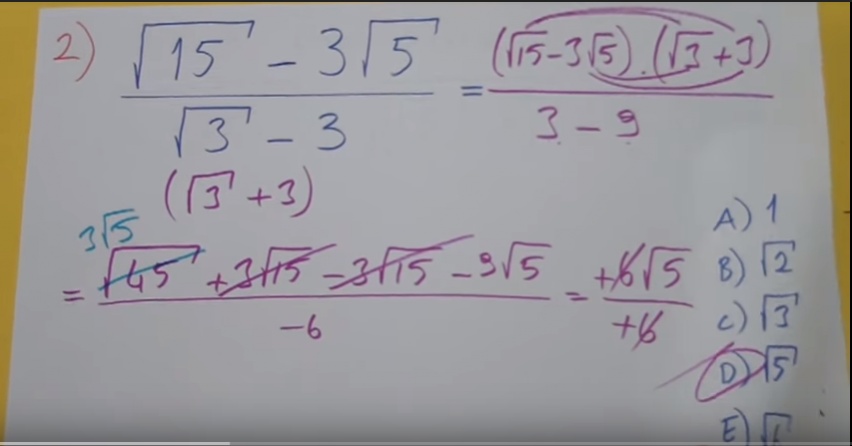 2) √15 - 3√5 / √3 - 3 = (√15 - 3√5) . (√3 + 3) / 3 - 9
(√3 + 3)
3√5
= √45 + 3√15 - 3√15 - 9√5 / -6 = +6√5 / +6
A) 1
B) √2
C) √3
D) √5
E)